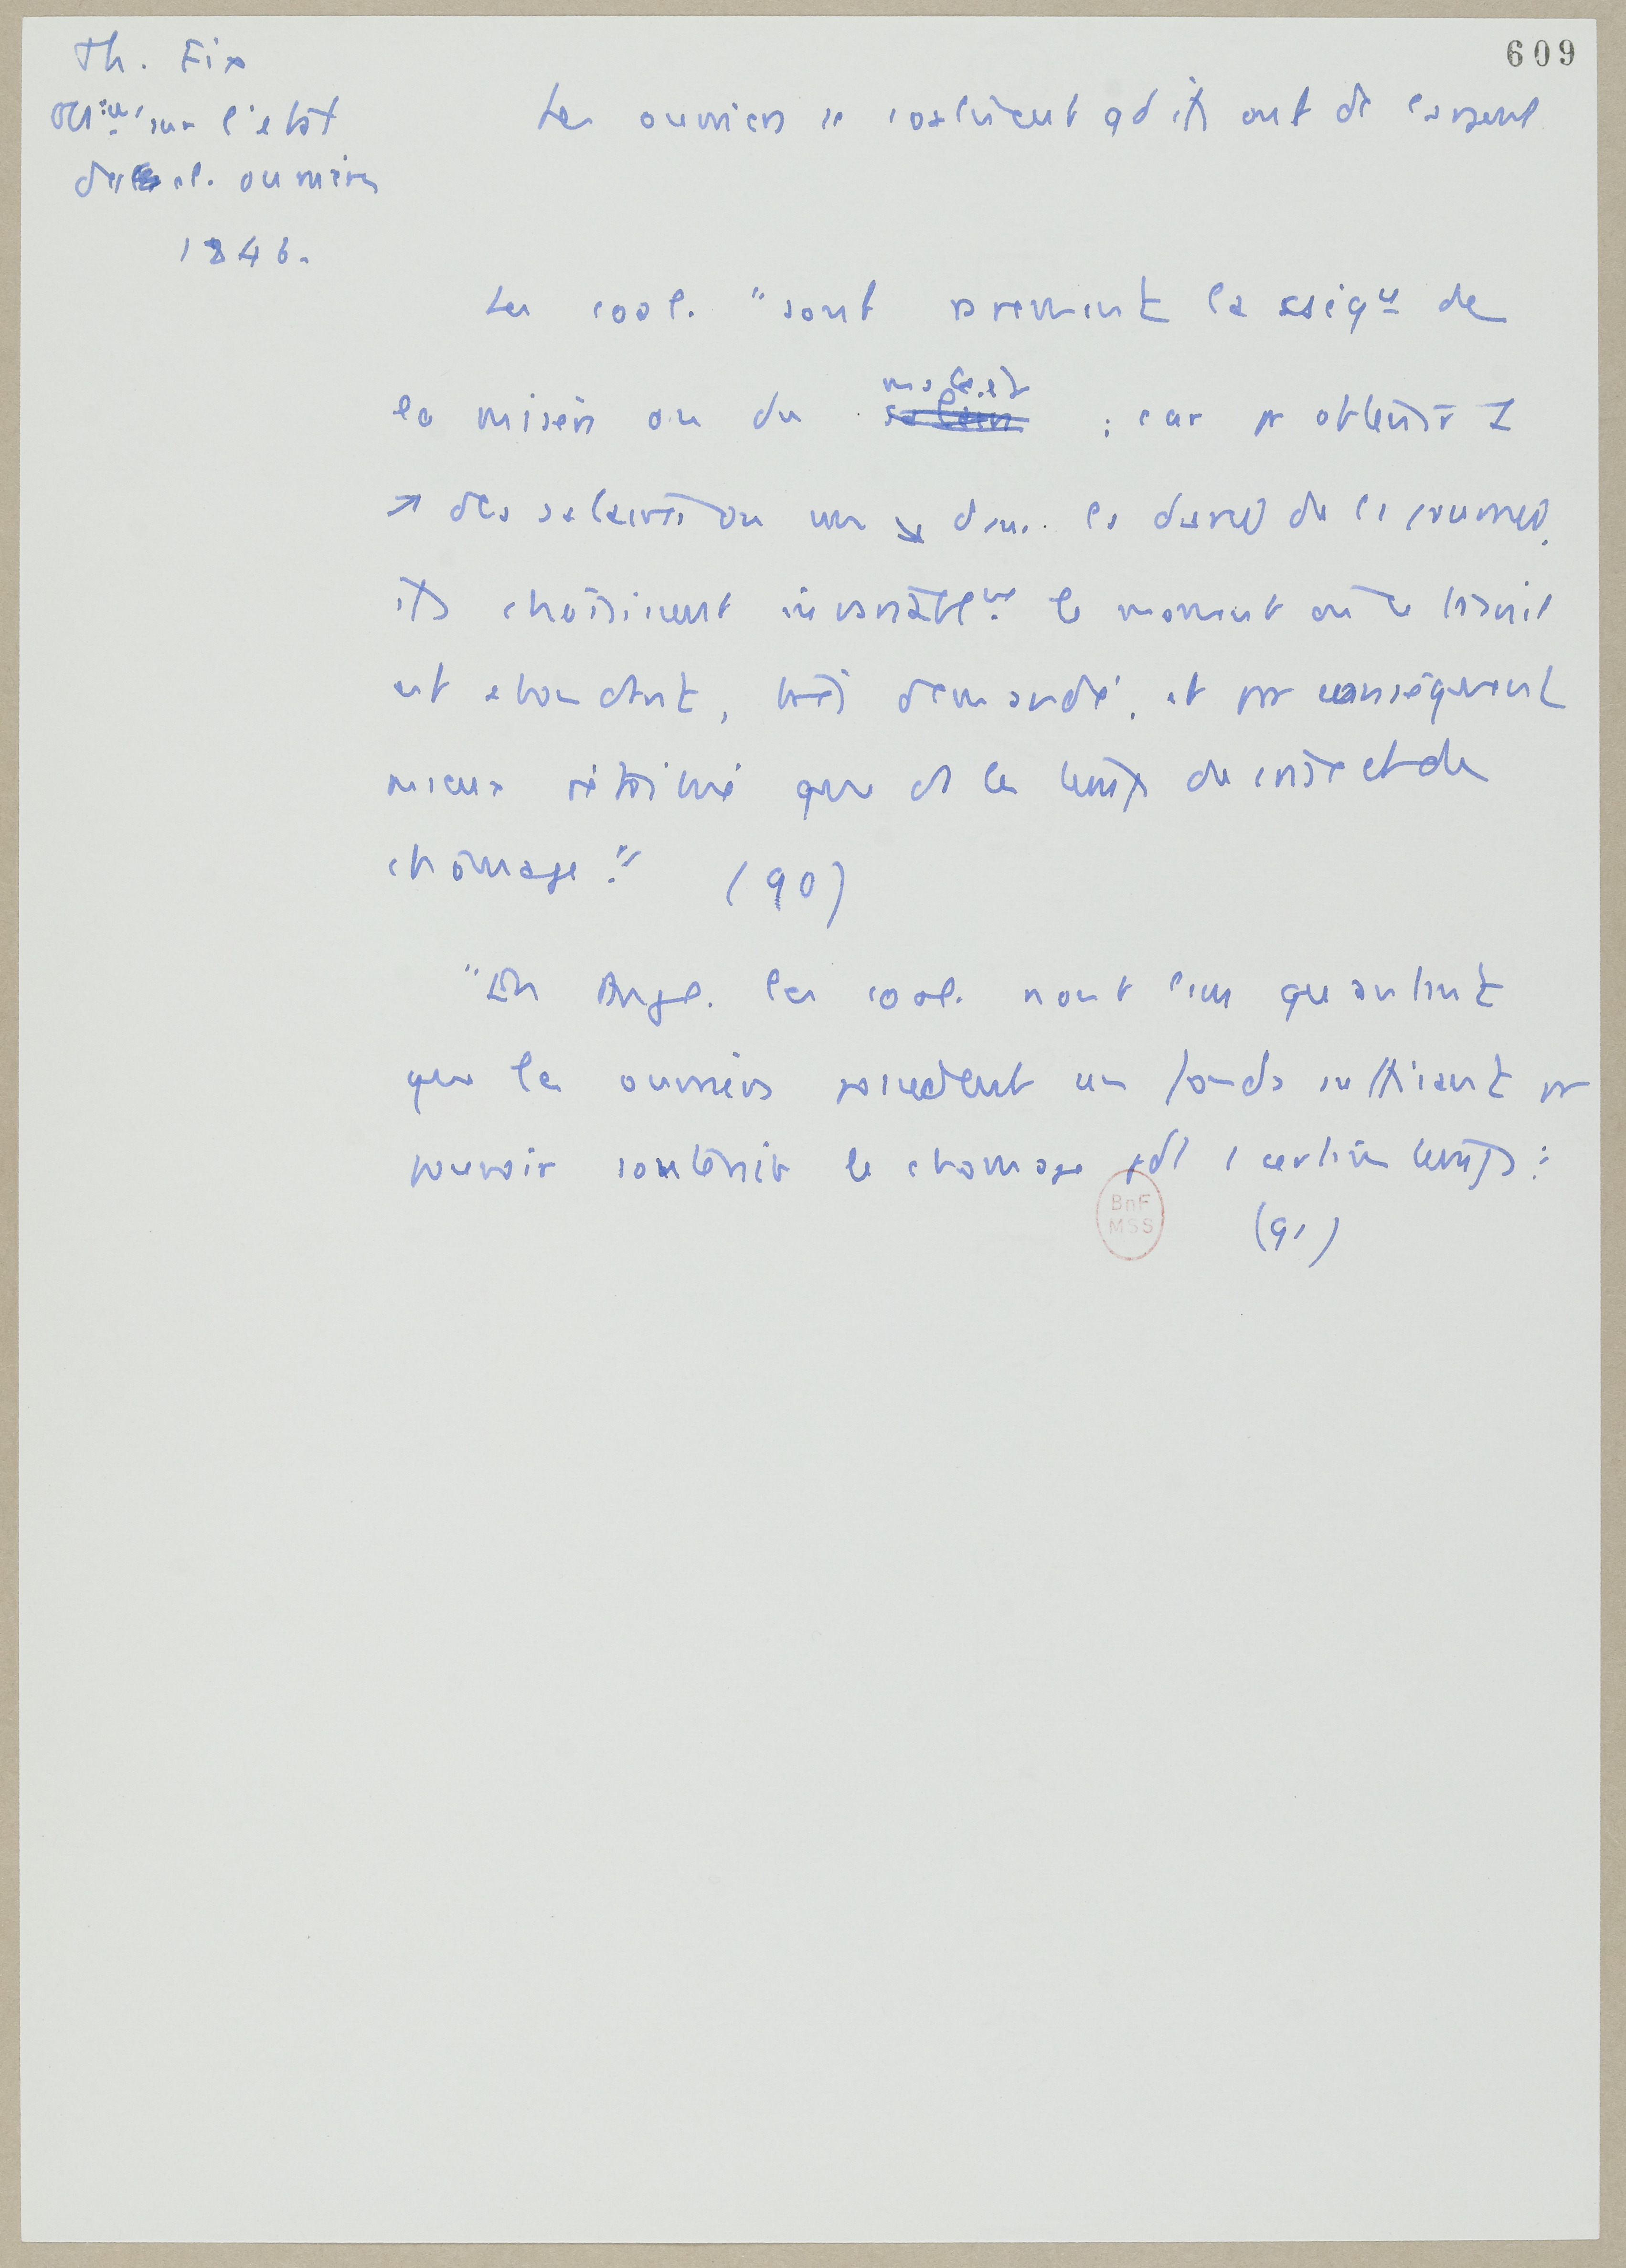 609
Th. Fix
Obs.ions sur l'état
des cl. ouvrières
1846.
Les ouvriers se coalisent qd ils ont de l'argent
Les coal. "sont rarement la cséqu de
la misère ou du malaise ; car pr obtenir 1
↗ des salaires ou une ↘ dans la durée de la journée,
ils choisissent invariablmt le moment où le travail
est abondant, très demandé, et par conséquent
mieux rétribué que ds les temps de crise et de
chômage." (90)
"En Angl. les coal. n'ont lieu qu'autant
que les ouvriers possèdent un fonds suffisant pr
pouvoir soutenir le chomage pdt 1 certain temps."
(91)
BnF
MSS